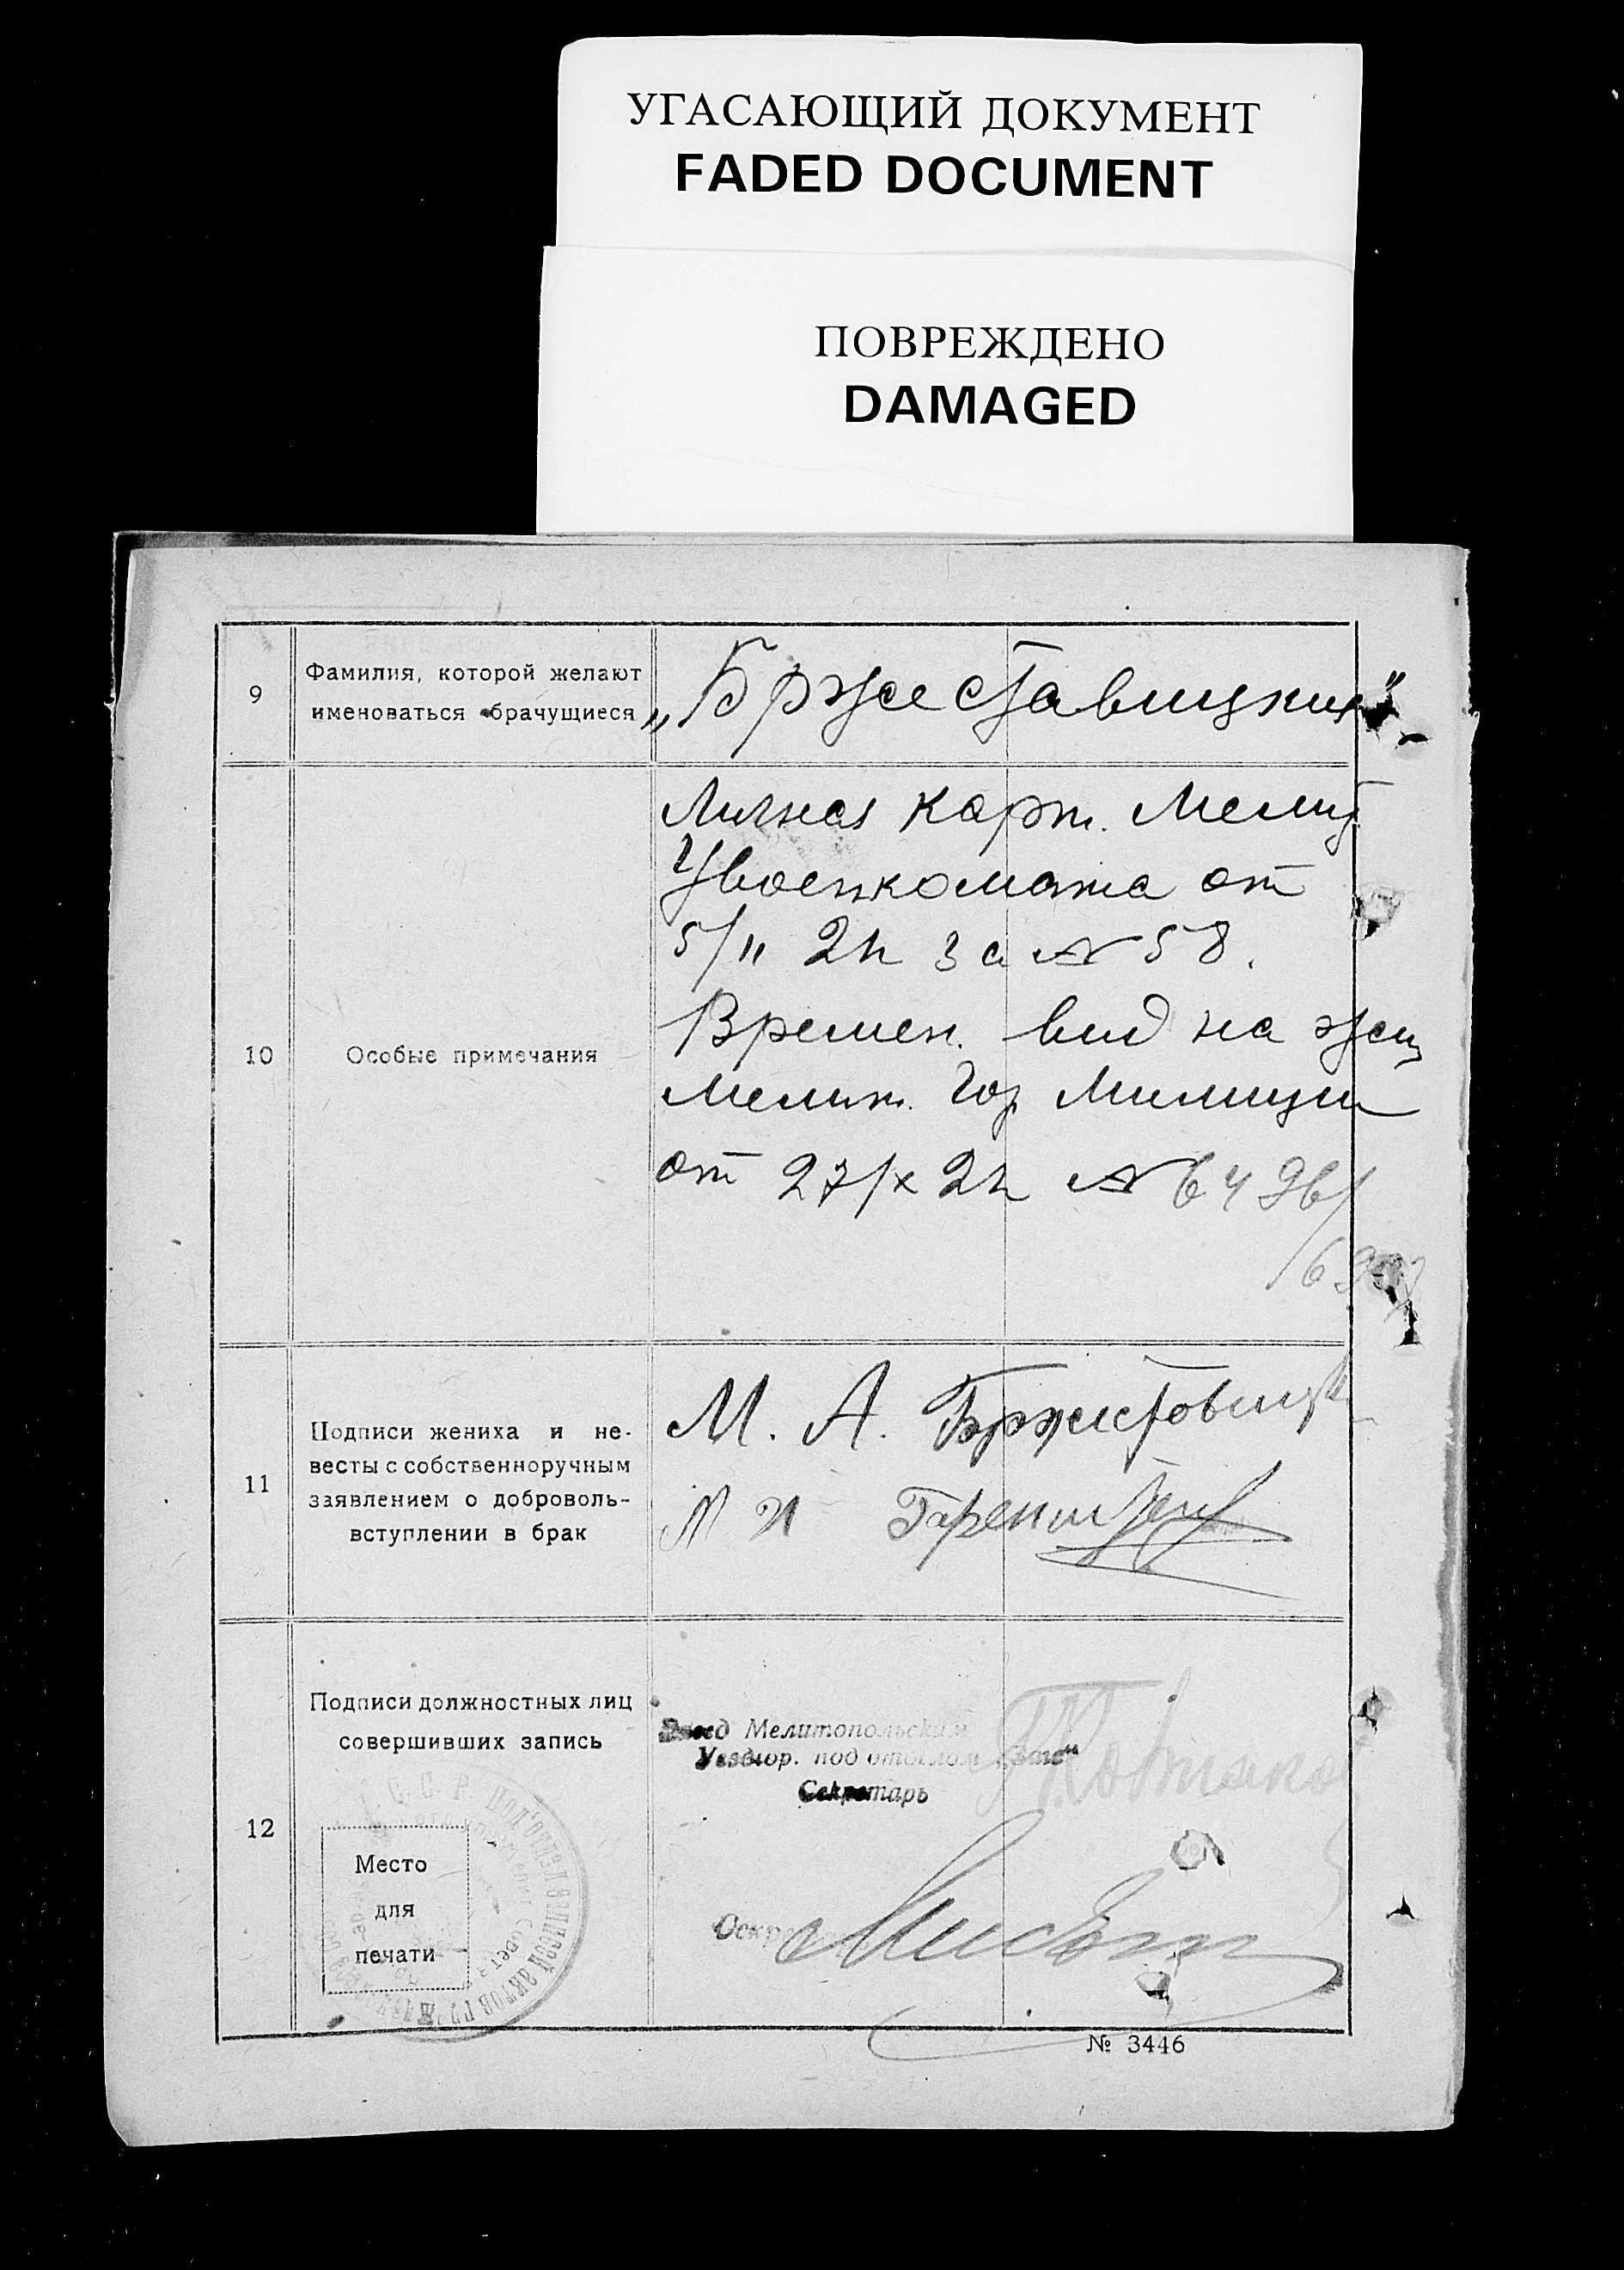 УГАСАЮЩИЙ ДОКУМЕНТ
FADED DOCUMENT
ПОВРЕЖДЕНО
DAMAGED
9
Фамилия, которой желают
именоваться брачущиеся
„Бржеставицкий"
10
Особые примечания
Личная карт. Мелит
Увоенкомата от
5/II 21 за № 58.
Времен. вид на жит
Мелит. Гор Милиции
от 27/X 21 № 6496/
11
Подписи жениха и не-
весты с собственноручным
заявлением о доброволь-
вступлении в брак
М. А.
12
Подписи должностных лиц
совершивших запись
Завед Мелитопольским
Уездгор. под отделом
Секретарь
Место
для
печати
С. С. Р. Под'отдел записей актов гр
№ 3446